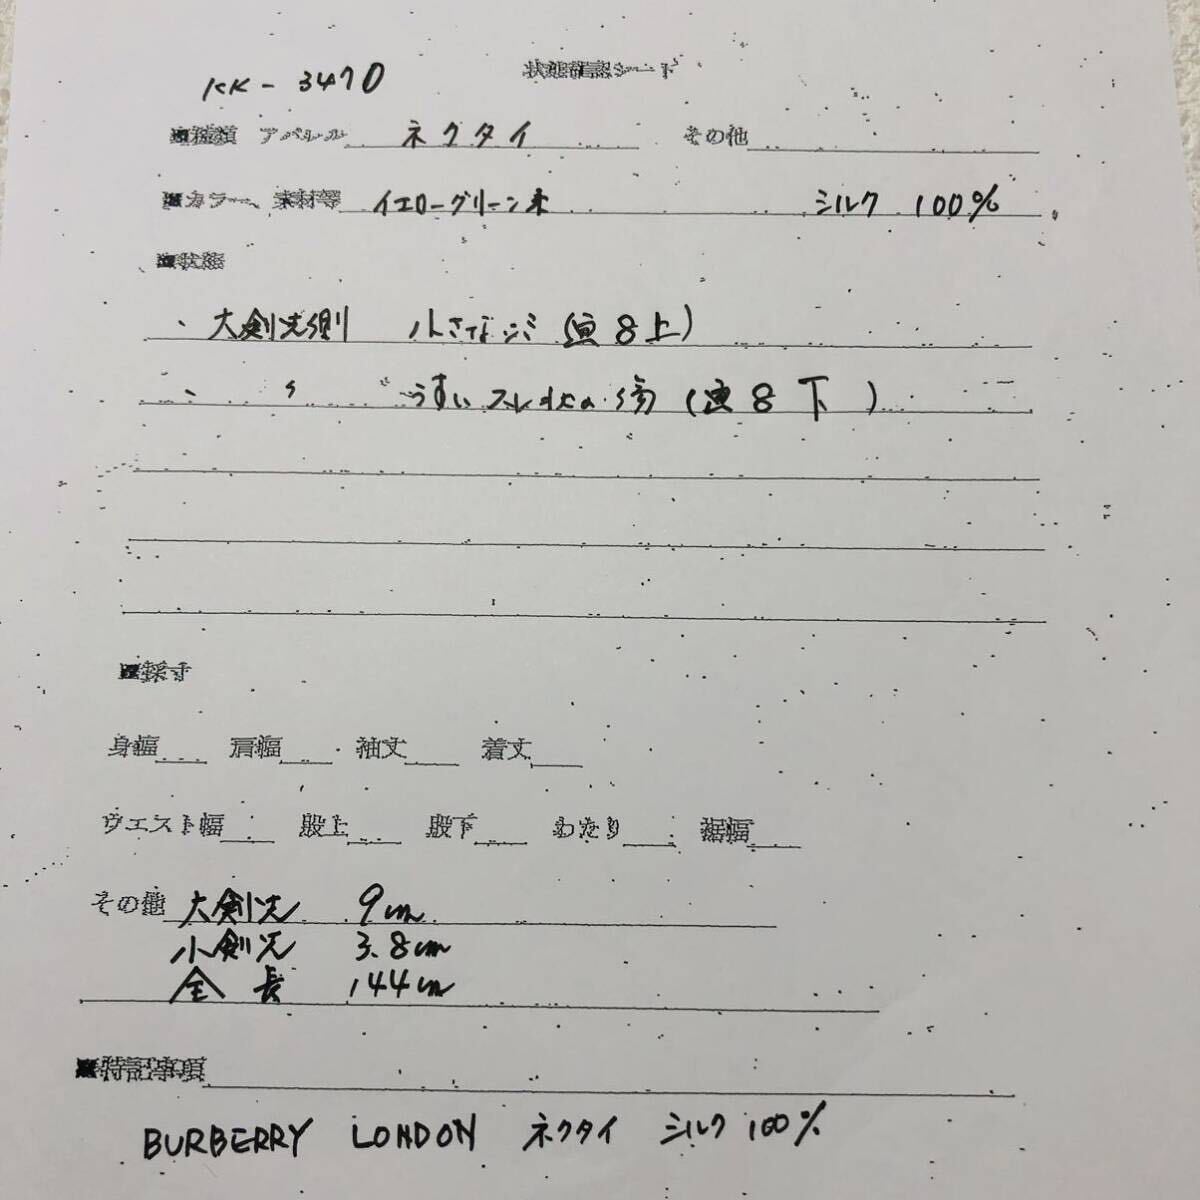 状態確認シート
KK-3470
■種類 アパレル ネクタイ その他
■カラー、素材等 イエローグリーン系 シルク 100%
■状態
・大剣先側 小さなシミ (画8上)
・ 〃 うすいスレ状の傷 (画8下)
■採寸
身幅 肩幅 袖丈 着丈
ウエスト幅 股上 股下 わたり 裾幅
その他 大剣先 9cm
小剣先 3.8cm
全長 144cm
■特記事項
BURBERRY LONDON ネクタイ シルク 100%